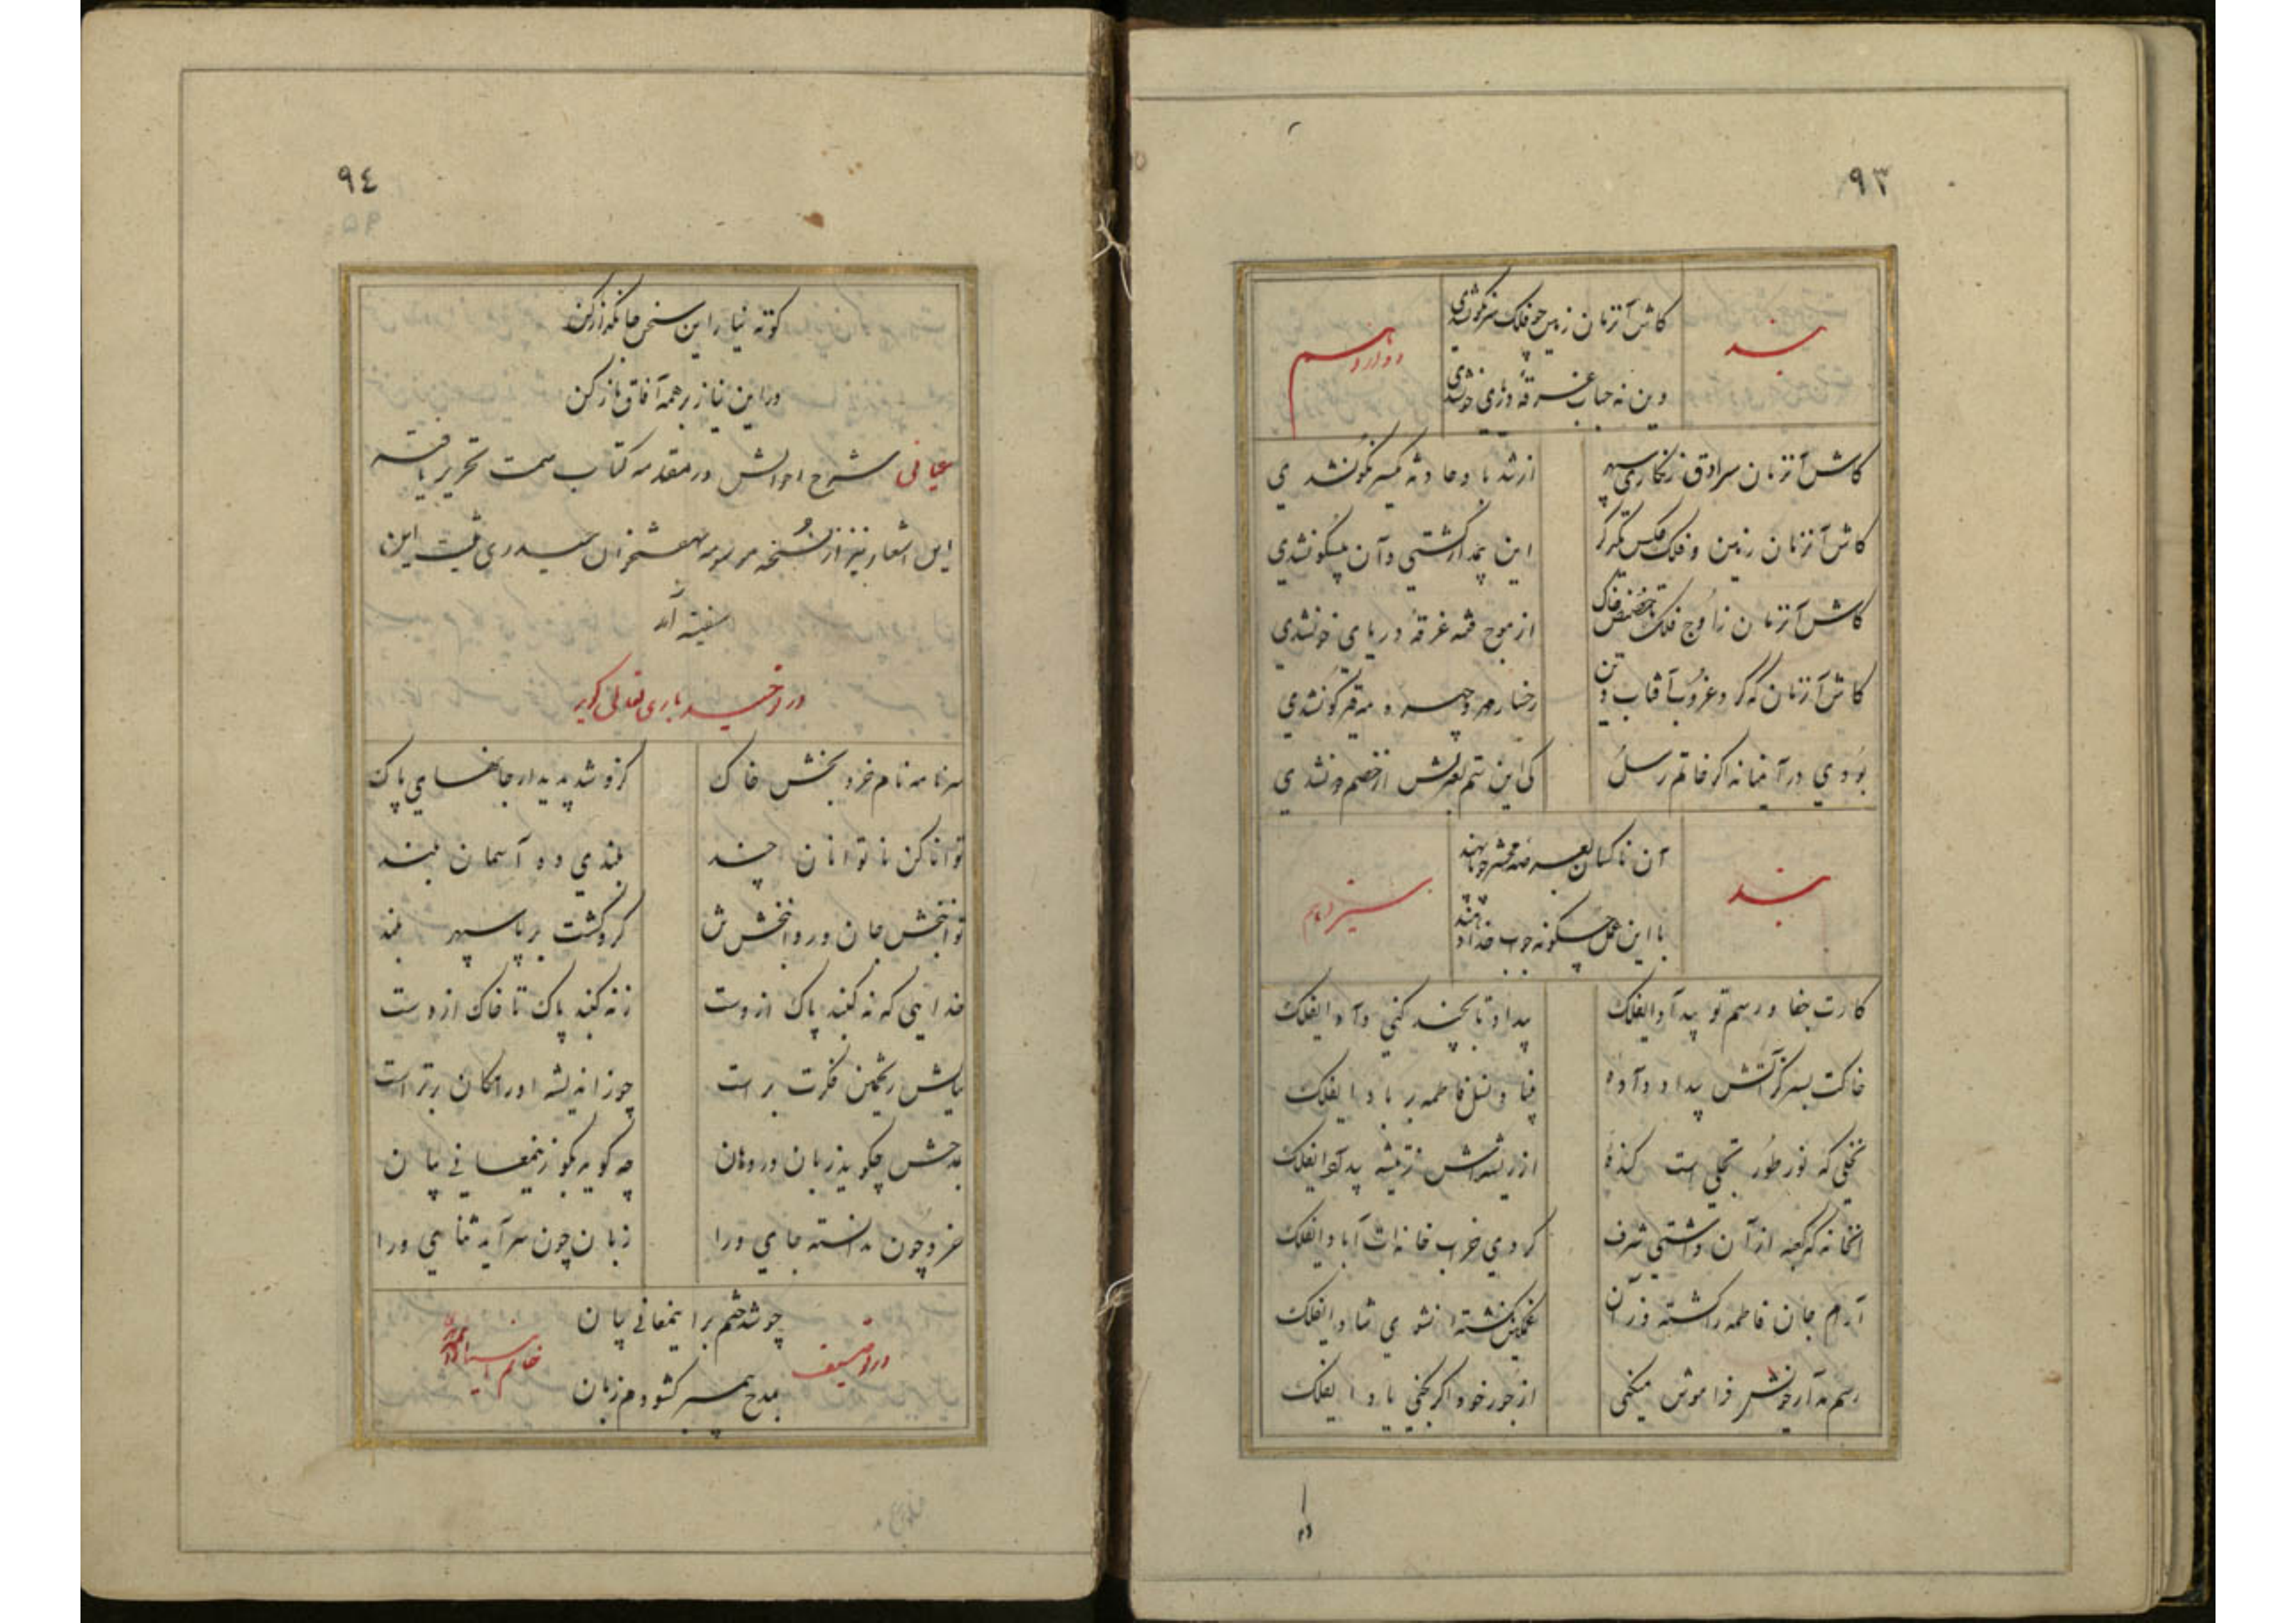 ۹۳
بند
کاش آنزمان زمین چو فلک سرنگون شدی
دوازدهم
وین نه حباب غرقهٔ دریای خون شدی
کاش آنزمان سرادق زنگاری سپهر
از تند باد حادثه یکسر نگونشدی
کاش آنزمان زمین و فلک عکس یکدگر
این پیدار گشتی و آن بیسکونشدی
کاش آنزمان ز اوج فلک تا حضیض خاک
از موج فتنه غرقهٔ دریای خونشدی
کاش آنزمان که کرد غروب آفتاب دین
رخسار مهر و چهره مه قیرگونشدی
بودی در آنمیانه اگر خاتم رسل
کی این ستم بعترتش از خصم دونشدی
بند
آن ناکسان بعرصه محشر چو پا نهند
سیزدهم
با این عمل چگونه جواب خدا دهند
کارت جفا و رسم تو بیداد ایفلک
بیداد تا بچند کنی داد ایفلک
خاکت بسر کز آتش بیداد داده
بنیاد نسل فاطمه بر باد ایفلک
نخلی که نور طور تجلی است کندهٔ
از ریشه اش ز تیشه بیداد ایفلک
آنخانه که کعبه از آن داشتی شرف
کردی خراب خانه ات آباد ایفلک
آرام جان فاطمه را کشته وز آن
غمگین نگشته نشوی شاد ایفلک
رسم مدار خویش فراموش میکنی
از جور خود اگر بکنی یاد ایفلک
۹٤
کوته نیاز این سخن جانگداز کن
در این نیاز بر همه آفاق ناز کن
عیانی شرح احوالش در مقدمه کتاب سمت تحریر یافته
این اشعار نیز از نسخه مرسومه بهفتخوان حیدری ثبت این
سفینه آمد
در توحید باری تعالی گوید
سر نامه نام خرد بخش خاک
کزو شد پدیدار جانهای پاک
توانا کن ناتوانان چند
بلندی ده آسمان بلند
توانبخش جان و روانبخش تن
کزو گشت برپا سپهر بلند
خدائی که نه گنبد پاک ازوست
ز نه گنبد پاک تا خاک ازوست
نیایش ز تخمین فکرت بر است
چو ز اندیشه اوراکان برتر است
بمدحش چگوید زبان در دهان
چه گوید بگو زینمعانی بیان
خرد چون ندانسته جای ورا
زبان چون سرآید ثنای ورا
چو شد ختم بر اینمعانی بیان
در توصیف خاتم انبیا
بمدح پیمبر گشودم زبان